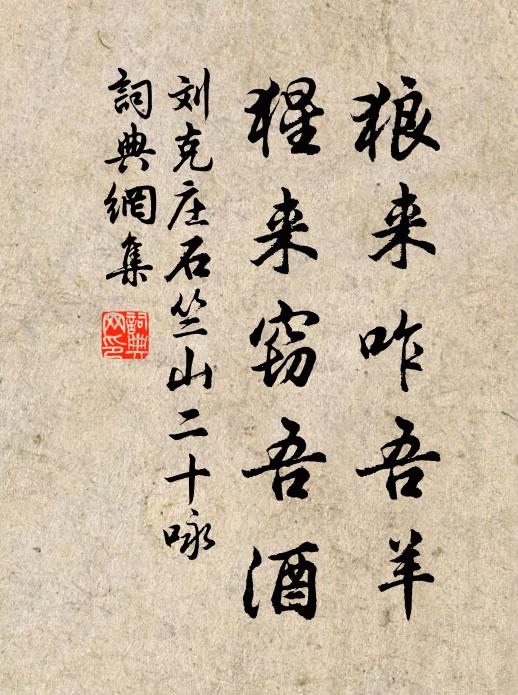 狼来咋吾羊
猩来窃吾酒
刘克庄石竺山二十咏
詞典網集
詞典網印